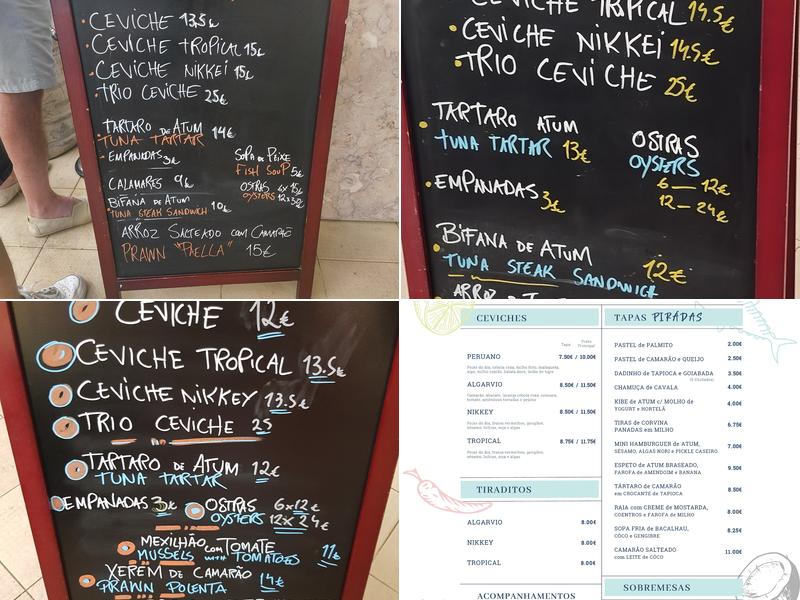 CEVICHE 13.5€
CEVICHE TROPICAL 15€
CEVICHE NIKKEI 15€
TRIO CEVICHE 25€
TARTARO DE ATUM
TUNA TARTAR 14€
EMPANADAS 3€
SOPA DE PEIXE
FISH SOUP 5€
CALAMARES 9€
OSTRAS 6x 15€
OYSTERS 12x30€
BIFANA DE ATUM
TUNA STEAK SANDWICH 10€
ARROZ SALTEADO COM CAMARÃO
PRAWN "PAELLA" 15€
CEVICHE TROPICAL 14.5€
CEVICHE NIKKEI 14.5€
TRIO CEVICHE 25€
TARTARO ATUM
TUNA TARTAR 13€
OSTRAS
OYSTERS
6 — 12€
12 — 24€
EMPANADAS 3€
BIFANA DE ATUM
TUNA STEAK SANDWICH 12€
CEVICHE 12€
CEVICHE TROPICAL 13.5€
CEVICHE NIKKEY 13.5€
TRIO CEVICHE 25
TARTARO DE ATUM 12€
TUNA TARTAR
EMPANADAS 3€
OSTRAS 6x12€
OYSTERS 12x24€
MEXILHÃO COM TOMATE
MUSSELS WITH TOMATOES 11€
XEREM DE CAMARÃO
PRAWN POLENTA 14€
CEVICHES
Tapa Prato Principal
PERUANO 7.50€ / 10.00€
ALGARVIO 8.50€ / 11.50€
NIKKEY 8.50€ / 11.50€
TROPICAL 8.75€ / 11.75€
TIRADITOS
ALGARVIO 8.00€
NIKKEY 8.00€
TROPICAL 8.00€
ACOMPANHAMENTOS
TAPAS PIRADAS
PASTEL de PALMITO 2.00€
PASTEL de CAMARÃO e QUEIJO 2.50€
DADINHO de TAPIOCA e GOIABADA 3.50€
CHAMUÇA de CAVALA 4.00€
KIBE de ATUM c/ MOLHO de
YOGURT e HORTELÃ 4.00€
TIRAS de CORVINA
PANADAS em MILHO 6.75€
MINI HAMBURGUER de ATUM,
SÉSAMO, ALGAS NORI e PICKLE CASEIRO 7.00€
ESPETO de ATUM BRASEADO,
FAROFA de AMENDOIM e BANANA 9.50€
TÁRTARO de CAMARÃO
em CROCANTE de TAPIOCA 8.50€
RAIA com CREME de MOSTARDA,
COENTROS e FAROFA de MILHO 8.00€
SOPA FRIA de BACALHAU,
CÔCO e GENGIBRE 8.25€
CAMARÃO SALTEADO
com LEITE de CÔCO 11.00€
SOBREMESAS